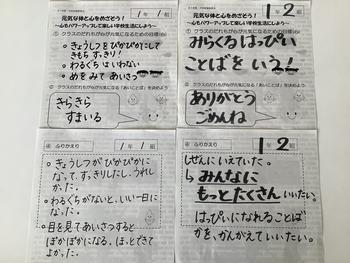 1年1組
元気な体と心をめざそう!
～心もパワーアップして楽しい学校生活にしよう～
①クラスのだれもが心が元気になるための目標(めあて)
・きょうしつをぴかぴかにして
きもちすっきり!
・わるぐちはいわない
・めをみてあいさつ
②クラスのだれもが心が元気になる「あいことば」を決めよう
きらきら
すまいる
1 2
元気な体と心をめざそう!
～心もパワーアップして楽しい学校生活にしよう～
①クラスのだれもが心が元気になるための目標
みらくるはっぴい
ことばをいう!
②クラスのだれもが心が元気になる「あいことば」を決めよう
ありがとう
ごめんね
ふりかえり
1年1組
・きょうしつがぴかぴかに
なって、すっきりしたし、うれし
かった。
・わるぐちがないと、いい一日に
なった。
・目を見てあいさつすると
ぽかぽかになる、ほっとできて
よかった。
ふりかえり
1年2組
しぜんにいえていた。
↳みんなに
もっとたくさんいいたい。
はっぴいになれることば
がを、かんがえていいたい。